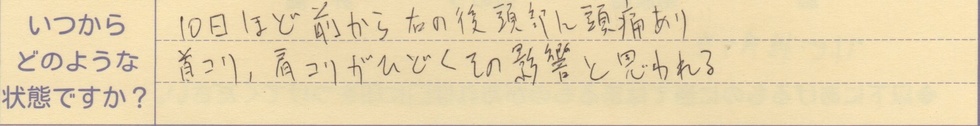 いつから
どのような
状態ですか？
10日ほど前から右の後頭部に頭痛あり
首コリ，肩コリがひどくその影響と思われる